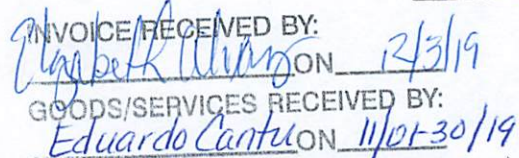 INVOICE RECEIVED BY:
Elizabeth Alvarez ON 12/3/19
GOODS/SERVICES RECEIVED BY:
Eduardo Cantu ON 11/01-30/19